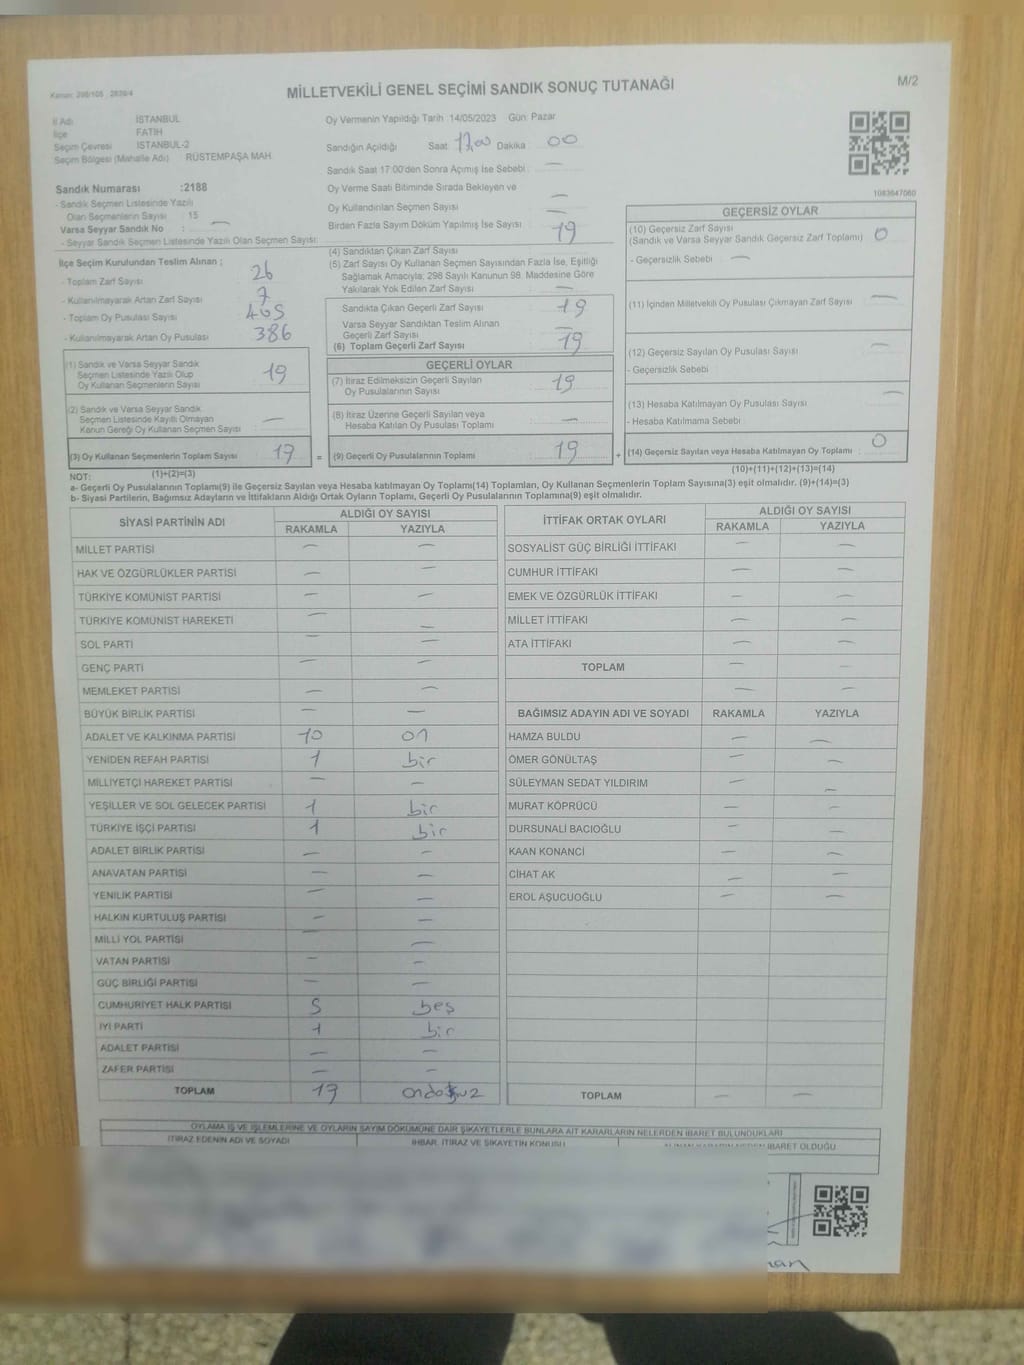 Kanun: 298/105 2839/4
MİLLETVEKİLİ GENEL SEÇİMİ SANDIK SONUÇ TUTANAĞI
M/2
İl Adı İSTANBUL
İlçe FATİH
Seçim Çevresi İSTANBUL-2
Seçim Bölgesi (Mahalle Adı) RÜSTEMPAŞA MAH.
Oy Vermenin Yapıldığı Tarih :14/05/2023 Gün: Pazar
Sandığın Açıldığı Saat 17,00 Dakika 00
Sandık Saat 17:00'den Sonra Açımış İse Sebebi : —
Oy Verme Saati Bitiminde Sırada Bekleyen ve
Oy Kullandırılan Seçmen Sayısı —
Birden Fazla Sayım Döküm Yapılmış İse Sayısı —
1083647060
Sandık Numarası :2188
- Sandık Seçmen Listesinde Yazılı
Olan Seçmenlerin Sayısı : 15
Varsa Seyyar Sandık No : —
- Seyyar Sandık Seçmen Listesinde Yazılı Olan Seçmen Sayısı:
İlçe Seçim Kurulundan Teslim Alınan ;
- Toplam Zarf Sayısı 26
- Kullanılmayarak Artan Zarf Sayısı 7
- Toplam Oy Pusulası Sayısı 405
- Kullanılmayarak Artan Oy Pusulası 386
(1) Sandık ve Varsa Seyyar Sandık
Seçmen Listesinde Yazılı Olup
Oy Kullanan Seçmenlerin Sayısı 19
(2) Sandık ve Varsa Seyyar Sandık
Seçmen Listesinde Kayıtlı Olmayan
Kanun Gereği Oy Kullanan Seçmen Sayısı —
(3) Oy Kullanan Seçmenlerin Toplam Sayısı 19 =
(1)+(2)=(3)
(4) Sandıktan Çıkan Zarf Sayısı 19
(5) Zarf Sayısı Oy Kullanan Seçmen Sayısından Fazla İse, Eşitliği
Sağlamak Amacıyla; 298 Sayılı Kanunun 98. Maddesine Göre
Yakılarak Yok Edilen Zarf Sayısı —
Sandıkta Çıkan Geçerli Zarf Sayısı 19
Varsa Seyyar Sandıktan Teslim Alınan
Geçerli Zarf Sayısı —
(6) Toplam Geçerli Zarf Sayısı 19
GEÇERLİ OYLAR
(7) İtiraz Edilmeksizin Geçerli Sayılan
Oy Pusulalarının Sayısı 19
(8) İtiraz Üzerine Geçerli Sayılan veya
Hesaba Katılan Oy Pusulası Toplamı —
(9) Geçerli Oy Pusulalarının Toplamı 19 +
GEÇERSİZ OYLAR
(10) Geçersiz Zarf Sayısı
(Sandık ve Varsa Seyyar Sandık Geçersiz Zarf Toplamı) 0
- Geçersizlik Sebebi —
(11) İçinden Milletvekili Oy Pusulası Çıkmayan Zarf Sayısı —
(12) Geçersiz Sayılan Oy Pusulası Sayısı —
- Geçersizlik Sebebi
(13) Hesaba Katılmayan Oy Pusulası Sayısı —
- Hesaba Katılmama Sebebi
(14) Geçersiz Sayılan veya Hesaba Katılmayan Oy Toplamı : 0
(10)+(11)+(12)+(13)=(14)
NOT:
a- Geçerli Oy Pusulalarının Toplamı(9) ile Geçersiz Sayılan veya Hesaba katılmayan Oy Toplamı(14) Toplamları, Oy Kullanan Seçmenlerin Toplam Sayısına(3) eşit olmalıdır. (9)+(14)=(3)
b- Siyasi Partilerin, Bağımsız Adayların ve İttifakların Aldığı Ortak Oyların Toplamı, Geçerli Oy Pusulalarının Toplamına(9) eşit olmalıdır.
SİYASİ PARTİNİN ADI ALDIĞI OY SAYISI
RAKAMLA YAZIYLA
MİLLET PARTİSİ — —
HAK VE ÖZGÜRLÜKLER PARTİSİ — —
TÜRKİYE KOMÜNİST PARTİSİ — —
TÜRKİYE KOMÜNİST HAREKETİ — —
SOL PARTİ — —
GENÇ PARTİ — —
MEMLEKET PARTİSİ — —
BÜYÜK BİRLİK PARTİSİ — —
ADALET VE KALKINMA PARTİSİ 10 on
YENİDEN REFAH PARTİSİ 1 bir
MİLLİYETÇİ HAREKET PARTİSİ — —
YEŞİLLER VE SOL GELECEK PARTİSİ 1 bir
TÜRKİYE İŞÇİ PARTİSİ 1 bir
ADALET BİRLİK PARTİSİ — —
ANAVATAN PARTİSİ — —
YENİLİK PARTİSİ — —
HALKIN KURTULUŞ PARTİSİ — —
MİLLİ YOL PARTİSİ — —
VATAN PARTİSİ — —
GÜÇ BİRLİĞİ PARTİSİ — —
CUMHURİYET HALK PARTİSİ 5 beş
İYİ PARTİ 1 bir
ADALET PARTİSİ — —
ZAFER PARTİSİ — —
TOPLAM 19 ondokuz
İTTİFAK ORTAK OYLARI ALDIĞI OY SAYISI
RAKAMLA YAZIYLA
SOSYALİST GÜÇ BİRLİĞİ İTTİFAKI — —
CUMHUR İTTİFAKI — —
EMEK VE ÖZGÜRLÜK İTTİFAKI — —
MİLLET İTTİFAKI — —
ATA İTTİFAKI — —
TOPLAM — —
— —
BAĞIMSIZ ADAYIN ADI VE SOYADI RAKAMLA YAZIYLA
HAMZA BULDU — —
ÖMER GÖNÜLTAŞ — —
SÜLEYMAN SEDAT YILDIRIM — —
MURAT KÖPRÜCÜ — —
DURSUNALİ BACIOĞLU — —
KAAN KONANCİ — —
CİHAT AK — —
EROL AŞUCUOĞLU — —
TOPLAM — —
OYLAMA İŞ VE İŞLEMLERİNE VE OYLARIN SAYIM DÖKÜMÜNE DAİR ŞİKAYETLERLE BUNLARA AİT KARARLARIN NELERDEN İBARET BULUNDUKLARI
İTİRAZ EDENİN ADI VE SOYADI İHBAR, İTİRAZ VE ŞİKAYETİN KONUSU İBARET OLDUĞU